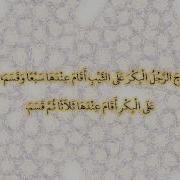 جَ الرَّجُلُ الْبِكْرَ عَلَى الثَّيِّبِ أَقَامَ عِنْدَهَا سَبْعًا وَقَسَمَ،
عَلَى الْبِكْرِ أَقَامَ عِنْدَهَا ثَلَاثًا ثُمَّ قَسَمَ.